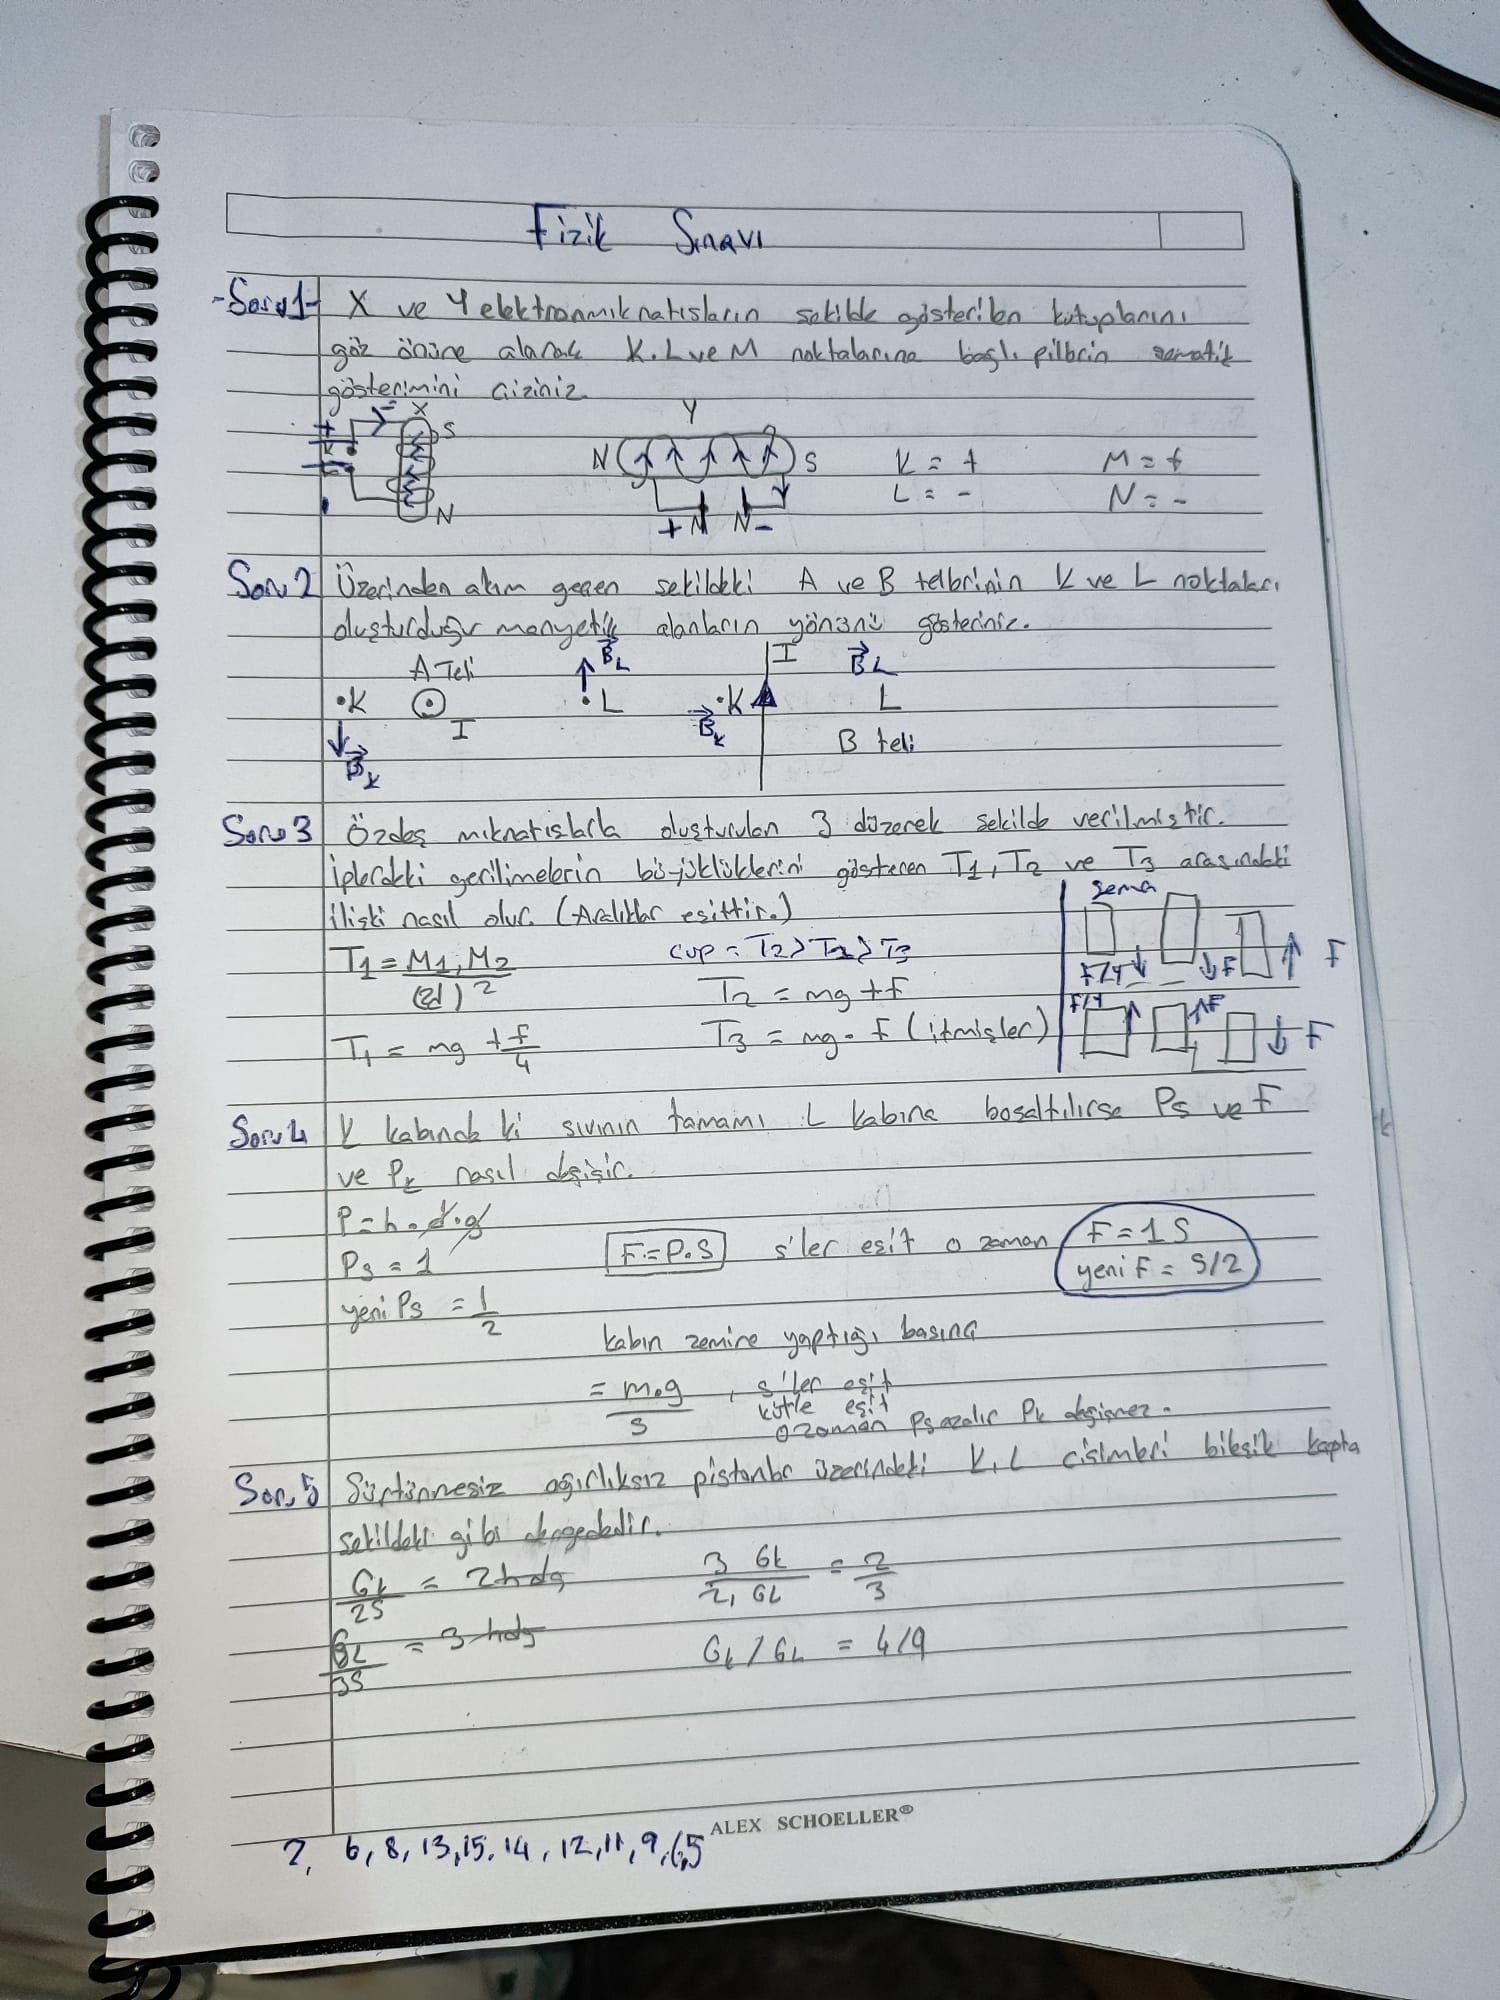 Fizik Sınavı
-Soru 1- X ve Y elektronmıknatısların sekilde gösterilen kutuplarını
göz önüne alarak K.L ve M noktalarına bağlı pillerin sematik
gösterimini ciziniz.
+ X S Y
K N S K = + M = +
L = - N = -
N + N N -
Soru 2 Üzerinden akım geçen sekildeki A ve B tellerinin K ve L noktaları
oluşturduğu manyetik alanların yönünü gösteriniz.
A Teli B⃗L I B⃗L
.K I .L .K L
B⃗K B⃗K B teli
Soru 3 Özdeş mıknatıslarla oluşturulan 3 düzenek sekilde verilmistir.
İplerdeki gerilimelerin büyüklüklerini gösteren T1, T2 ve T3 arasındaki
ilişki nasıl olur. (Aralıklar esittir.) sema
T1 = M1.M2 / (2d)² cvp = T2 > T1 > T3 F/4 F F
T2 = mg + F
T1 = mg + F/4 T3 = mg - F (itmişler) F/4 F F
Soru 4 K kabındaki sıvının tamamı L kabına bosaltılırsa Ps ve F
ve Pk nasıl değişir.
P = h.d.g
Ps = 1 F = P.S s'ler esit o zaman F = 1 S
yeni F = S/2
yeni Ps = 1/2
kabın zemine yaptığı basınç
= m.g / s , s'ler eşit
kütle eşit
o zaman Ps azalır Pk değişmez.
Soru 5 Sürtünmesiz ağırlıksız pistonlar üzerindeki K, L cisimleri bileşik kapta
sekildeki gibi dengededir.
Gk / 2S = 2hdg 3 Gk / 2, GL = 2 / 3
GL / 3S = 3hdg Gk / GL = 4/9
ALEX SCHOELLER®
2, 6, 8, 13, 15, 14, 12, 11, 9, 6,5